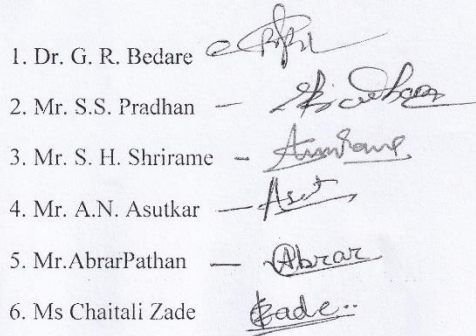 1. Dr. G. R. Bedare
2. Mr. S.S. Pradhan —
3. Mr. S. H. Shrirame —
4. Mr. A.N. Asutkar — Asut
5. Mr.AbrarPathan — Abrar
6. Ms Chaitali Zade Zade..